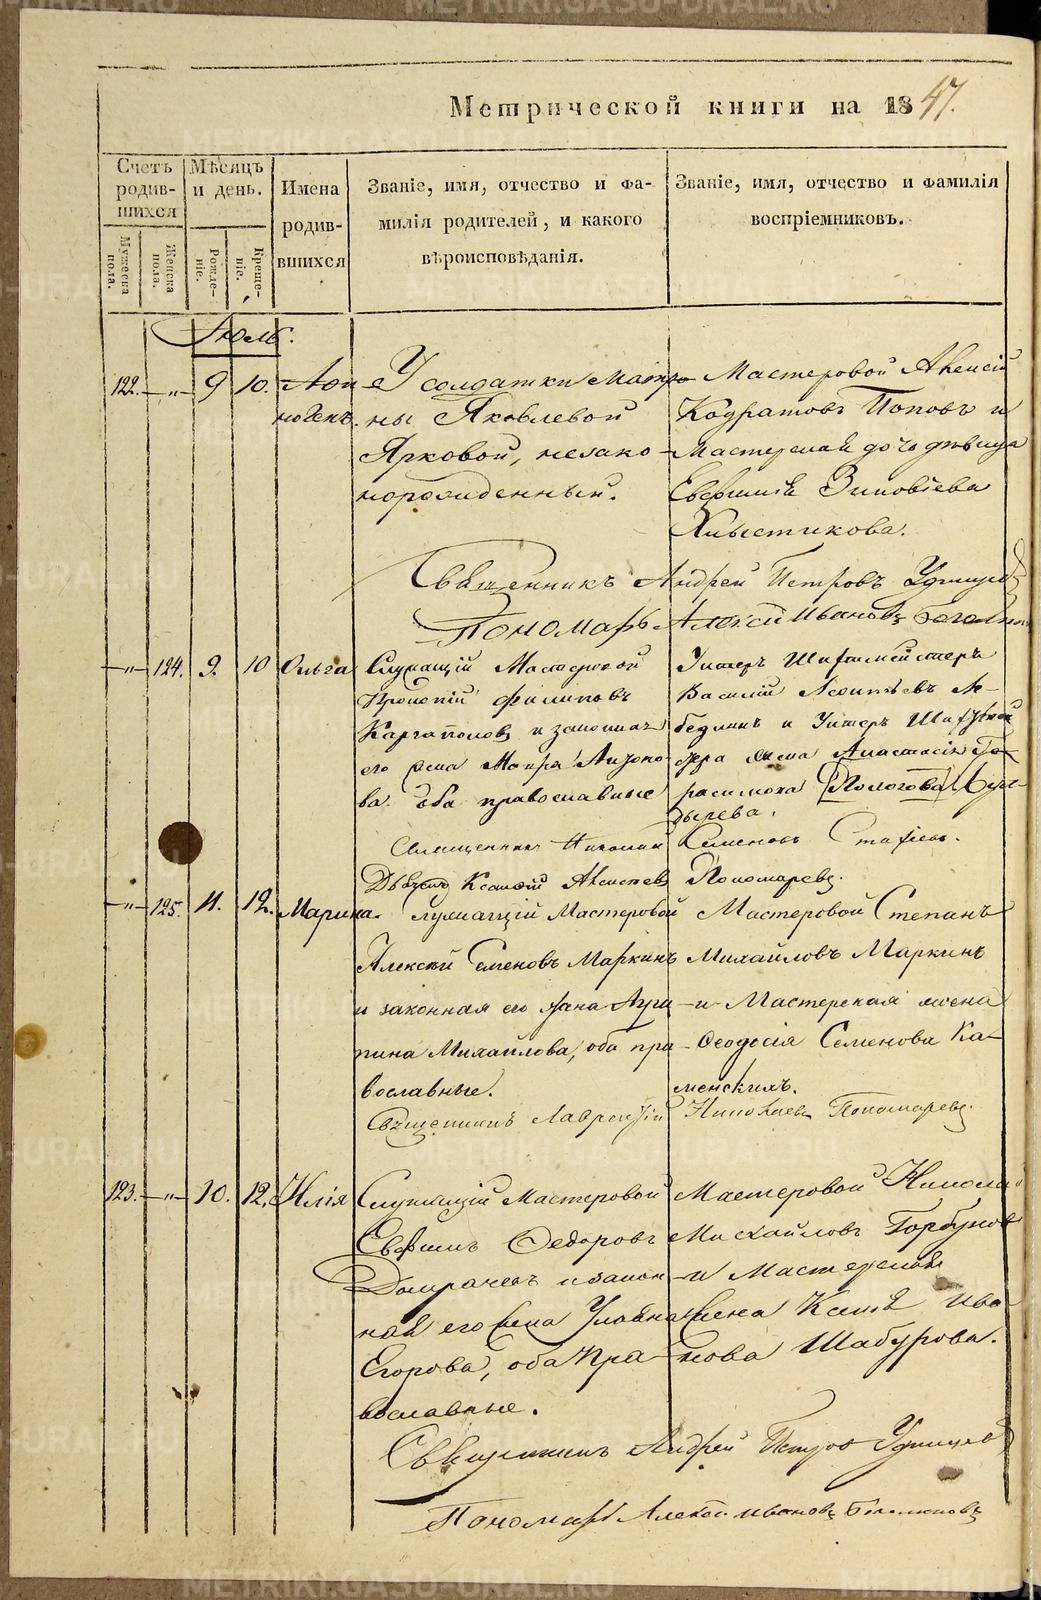 Метрической книги на 1847.
Счетъ родив-шихся
Мѣсяцъ и день.
Имена родив-вшихся
Званіе, имя, отчество и фа-
милія родителей, и какого
вѣроисповѣданія.
Званіе, имя, отчество и фамилія
воспріемниковъ.
Мужеска пола.
Женска пола.
Рожде-ніе.
Креще-ніе.
Іюль.
122. —„— 9 10.
У солдатки Матро-
ны Яковлевой
Ярковой, незако-
норожденный.
Мастеровой Алексій
Кодратовъ Поповъ и
Мастерская дочь дѣвица
Евфимія Зиновіева
Хлыстикова.
Священникъ Андрей Петровъ Удинцевъ
Пономарь Алексій Ивановъ
—„— 124. 9. 10 Ольга
Служащій Мастеровой
Прокопій Филиповъ
Каргаполовъ и законная
его жена Мавра Антоно-
ва оба православные
Унтеръ Шихтмейстеръ
Василій Леонтьевъ Ле-
бедкинъ и Унтеръ
жена Анастасія Ге-
расимова
Священникъ Николай Семеновъ Стафіевъ.
Дьячекъ Алексѣевъ Пономаревъ.
—„— 125. 11. 12. Марина.
Служащій Мастеровой
Алексѣй Семеновъ Маркинъ
и законная его жена Агри-
пина Михайлова, оба пра-
вославные.
Мастеровой Степанъ
Михайловъ Маркинъ
и Мастерская жена
Ѳеодосія Семенова Ка-
менскихъ.
Священникъ Лаврентій Николаевъ Пономаревъ.
123. —„— 10. 12. Илія
Служащій Мастеровой
Евфимъ Ѳедоровъ
Домрачевъ и закон-
ная его жена Ульяна
Егорова, оба Пра-
вославные.
Мастеровой Николай
Михайловъ Горбуновъ
и Мастерская
жена Ксенія Ива-
нова Шабурова.
Священникъ Андрей Петровъ Удинцевъ
Пономарь Алексѣй Ивановъ
METRIKI.GASU-URAL.RU